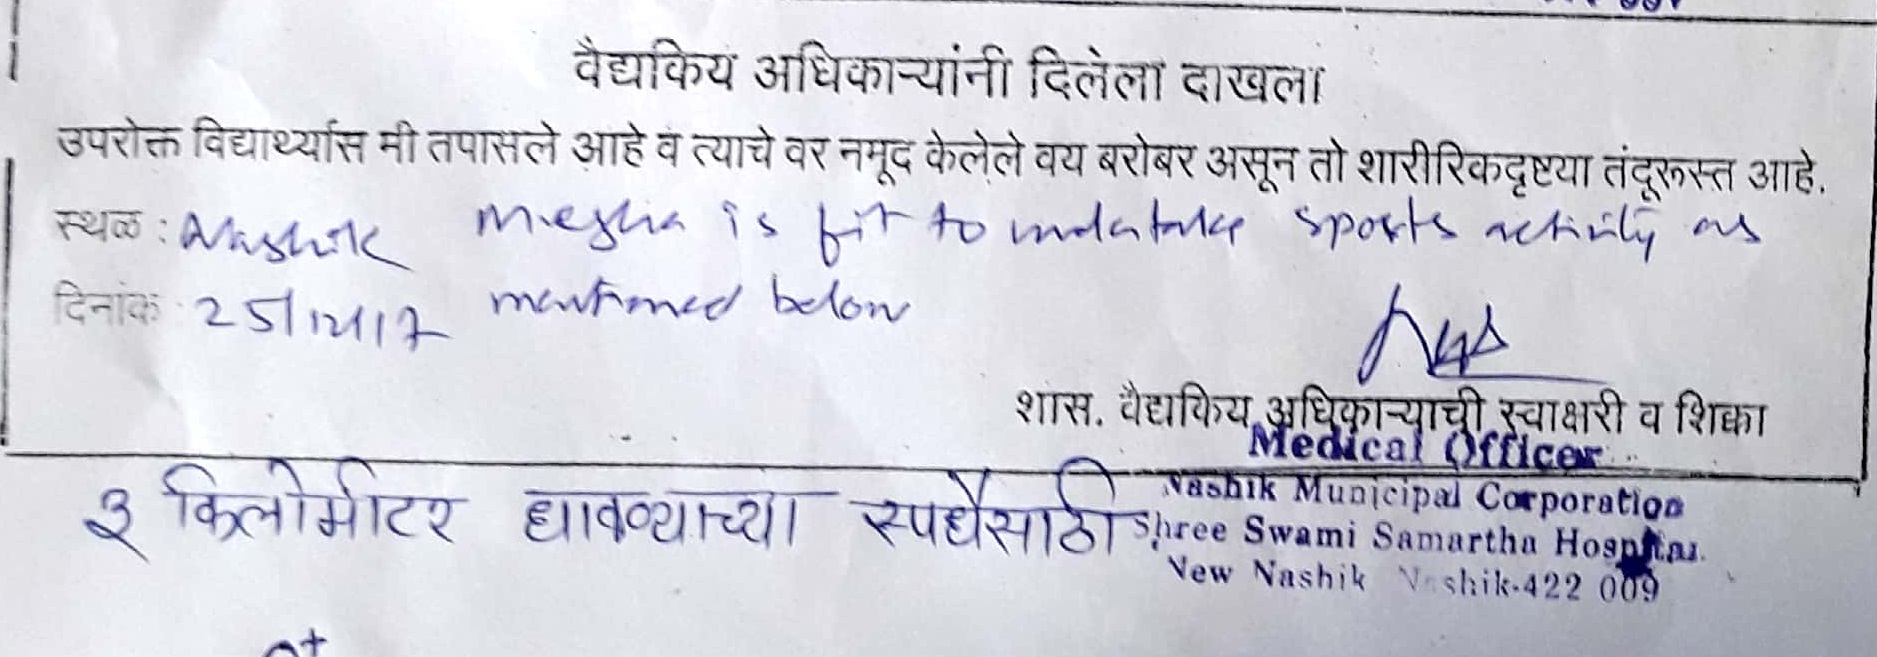 वैद्यकिय अधिकाऱ्यांनी दिलेला दाखला
उपरोक्त विद्यार्थ्यास मी तपासले आहे व त्याचे वर नमूद केलेले वय बरोबर असून तो शारीरिकदृष्टया तंदूरूस्त आहे.
स्थळ : Nashik Megha is fit to undertake sports activity as
दिनांक 25/12/17 mentioned below
शास. वैद्यकिय अधिकाऱ्याची स्वाक्षरी व शिक्का
Medical Officer
Nashik Municipal Corporation
३ किलोमीटर धावण्याच्या स्पर्धेसाठी Shree Swami Samartha Hospital
New Nashik Nashik-422 009